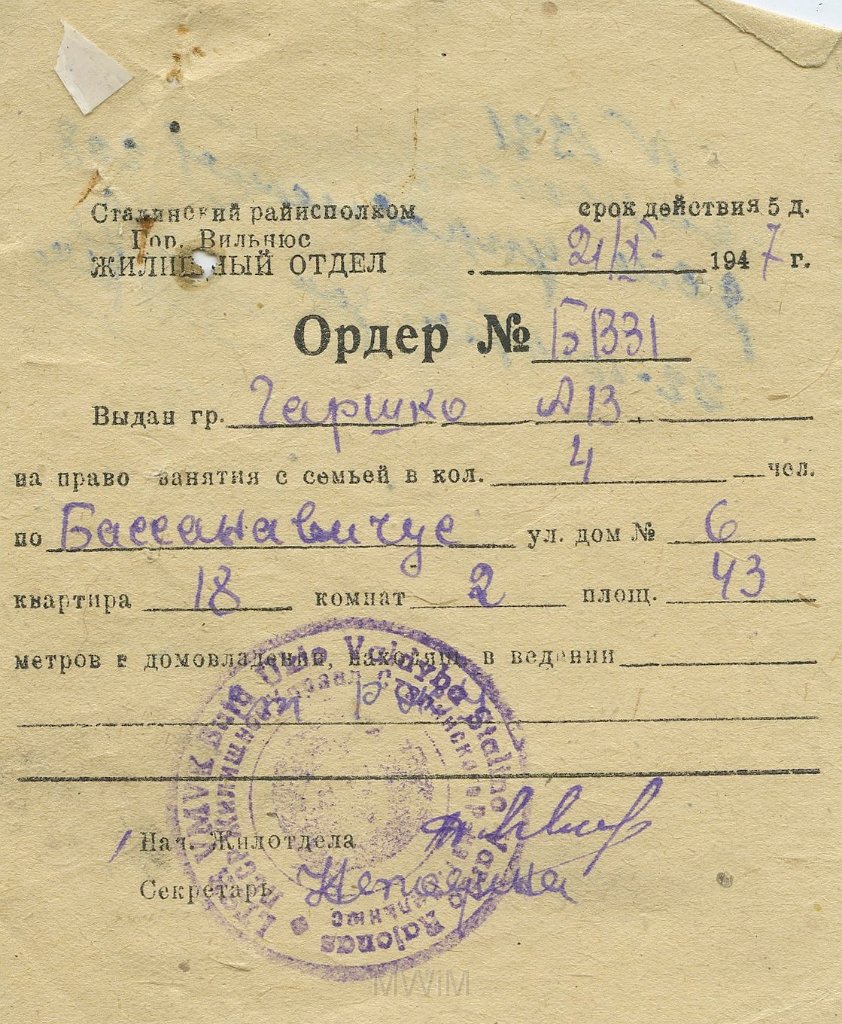 Сталинский райисполком
Гор. Вильнюс
ЖИЛИЩНЫЙ ОТДЕЛ
срок действия 5 д.
21/X 1947 г.
Ордер № Б1331
Выдан гр. Гаршко АВ
на право занятия с семьей в кол. 4 чел.
по Бассанавичус ул. дом № 6
квартира 18 комнат 2 площ. 43
метров в домовладении, находящ. в ведении
Нач. Жилотдела
Секретарь
LTSR VMVK Butų Ūkio Valdyba Stalino Rajonas
MWiM